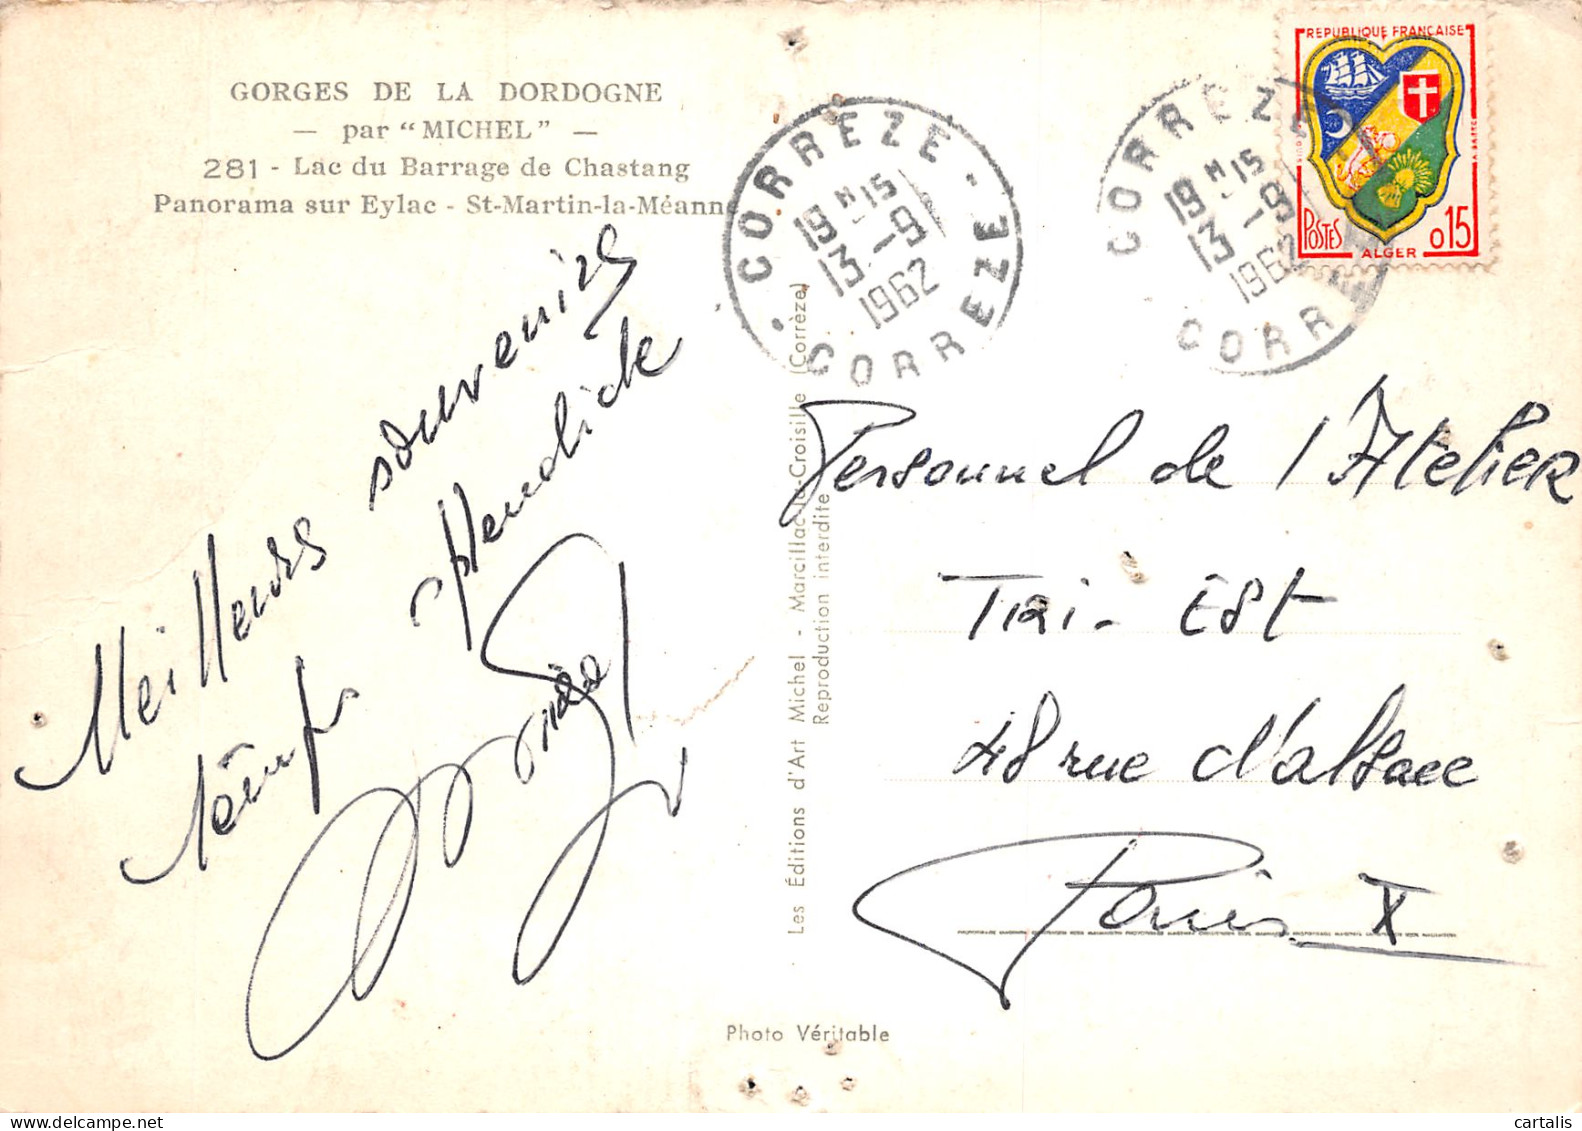 GORGES DE LA DORDOGNE
— par “MICHEL” —
281 - Lac du Barrage de Chastang
Panorama sur Eylac - St-Martin-la-Méanne
CORREZE
19 H 15
13 - 9
1962
CORREZE
CORREZE
19 H 15
13 - 9
1962
CORR
REPUBLIQUE FRANÇAISE
POSTES
ALGER
0 15
Meilleurs souvenirs
temps splendide
Personnel de l'Atelier
Tri - Est
48 rue d'alsace
Paris X
Les Éditions d'Art Michel - Marcillac-la-Croisille (Corrèze)
Reproduction interdite
Photo Véritable
cartalis